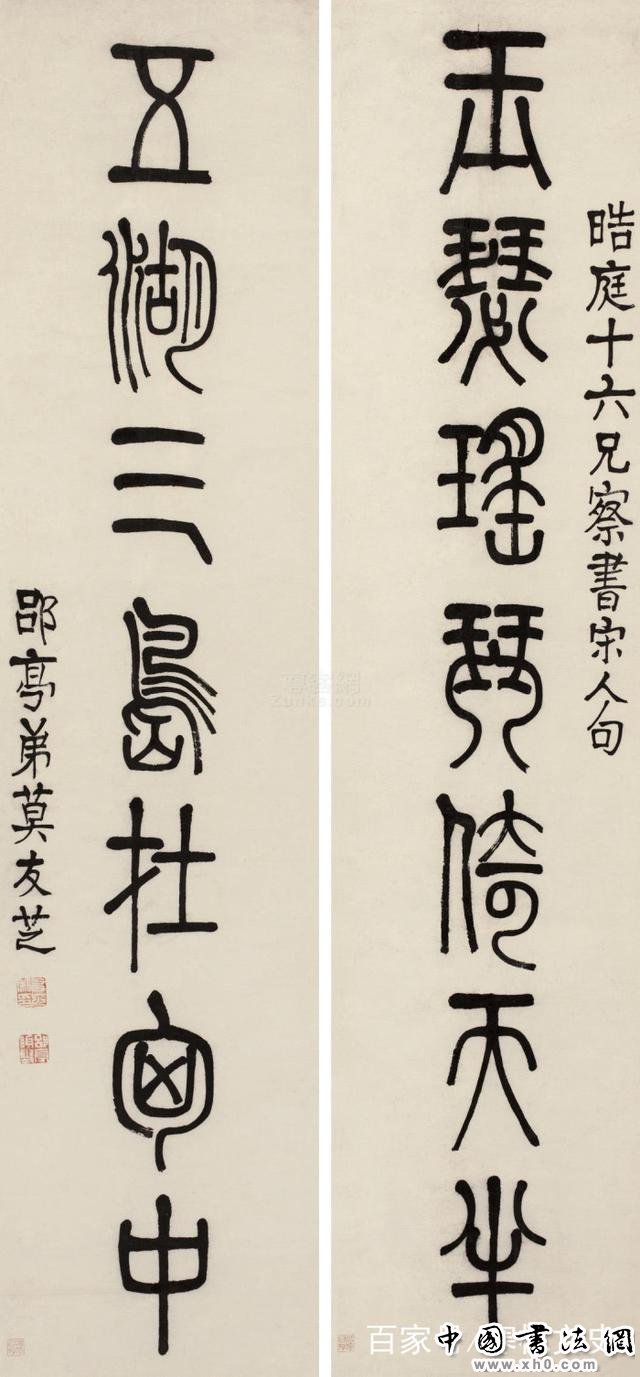 晧庭十六兄察書宋人句
玉瑟瑤琴倚天半
五湖三島在匈中
郘亭弟莫友芝
中國書法網
www.xh0.com